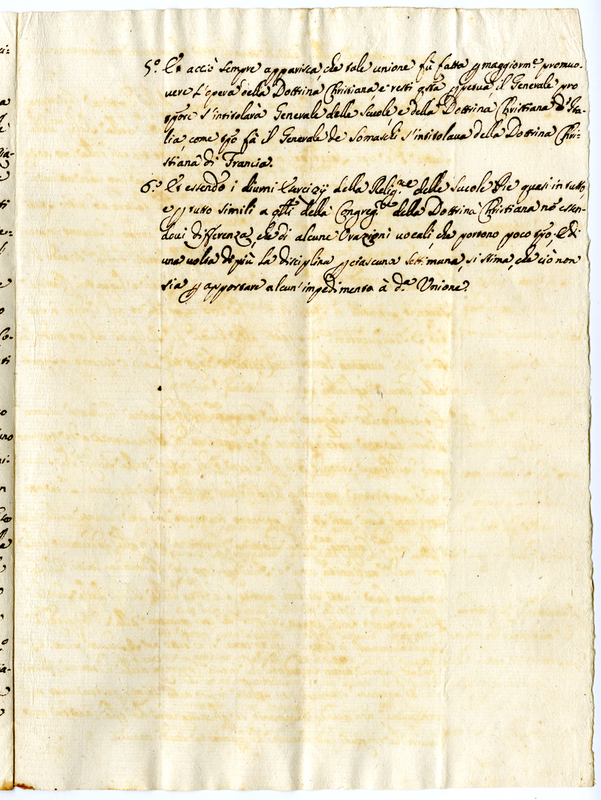 5.º Et acciò sempre apparisca, che tale unione fù fatta p maggiorm.e promuo-
vere l'opera della Dottrina Christiana e resti p.petua il Generale pro
tpore s'intitolarà Generale delle Scuole e della Dottrina Christiana d'Ita-
lia, come già il Generale de Somaschi s'intitolava della Dottrina Chri-
stiana di Francia.
6.º Et essendo i diurni Esercizij della Relig.ne delle Scuole Pie quasi in tutto,
e p tutto simili a q.lli della Congreg.ne della Dottrina Christiana nõ essen-
dovi differenza, che di alcune Orazioni vocali, che portono poco tpo, e di
una volta di più la disciplina p ciascuna settimana, si stima, che ciò non
sia p apportare alcun' impedimento à d.a Unione.